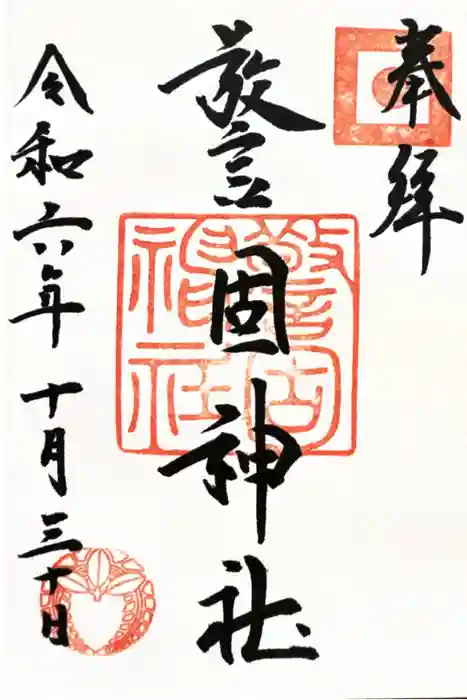 奉拝
警固神社
警固神社
令和六年十月三十日